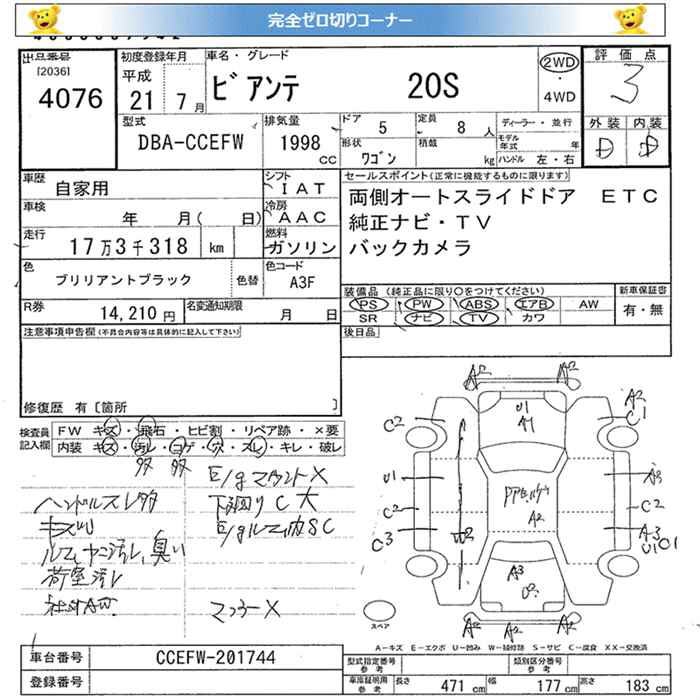 完全ゼロ切りコーナー
出品番号
[2036]
4076
初度登録年月
平成
21 7月
車名・グレード
ビアンテ 20S
2WD
・
4WD
評価点
3
外装 内装
D D
型式
DBA-CCEFW
排気量
1998
CC
ドア
5
定員
8 人
形状
ワゴン
積載
kg
ディーラー・並行
モデル年式 年
ハンドル 左・右
車歴
自家用
シフト
IAT
車検
年 月( 日)
冷房
AAC
走行
17万3千318 km
燃料
ガソリン
色
ブリリアントブラック
色替
色コード
A3F
R券
14,210 円
名変通知期限
月 日
セールスポイント(正常に機能するものに限ります)
両側オートスライドドア ETC
純正ナビ・TV
バックカメラ
装備品 (純正品に限り○をつけてください)
PS PW ABS エアB AW
SR ナビ TV カワ
新車保証書
有・無
後日品
注意事項申告欄(不具合内容等は具体的に記入して下さい)
修復歴 有〔箇所 〕
検査員
記入欄
FW キズ・飛石・ヒビ割・リペア跡・×要
内装 キズ・汚レ・コゲ・穴・スレ・キレ・破レ
多 多
E/gマウント×
ハンドルスレ多
下回りC大
キズU
E/gルーム内SC
ルーフヤニ汚レ、臭い
荷室汚レ
社外AW
マフラー×
A2 A2
U1
A1
A2
C1
C2
U1
C2
C3
U2
A2
A3
C2
A3
U1 C1
A3
U2
A2 A2
スペア
A－キズ E－エクボ U－凹み W－補修跡 S－サビ C－腐食 XX－交換済
車台番号
CCEFW-201744
登録番号
型式指定番号
参考
類別区分番号
参考
車庫証明用
参考
長さ 471 cm 幅 177 cm 高さ 183 cm